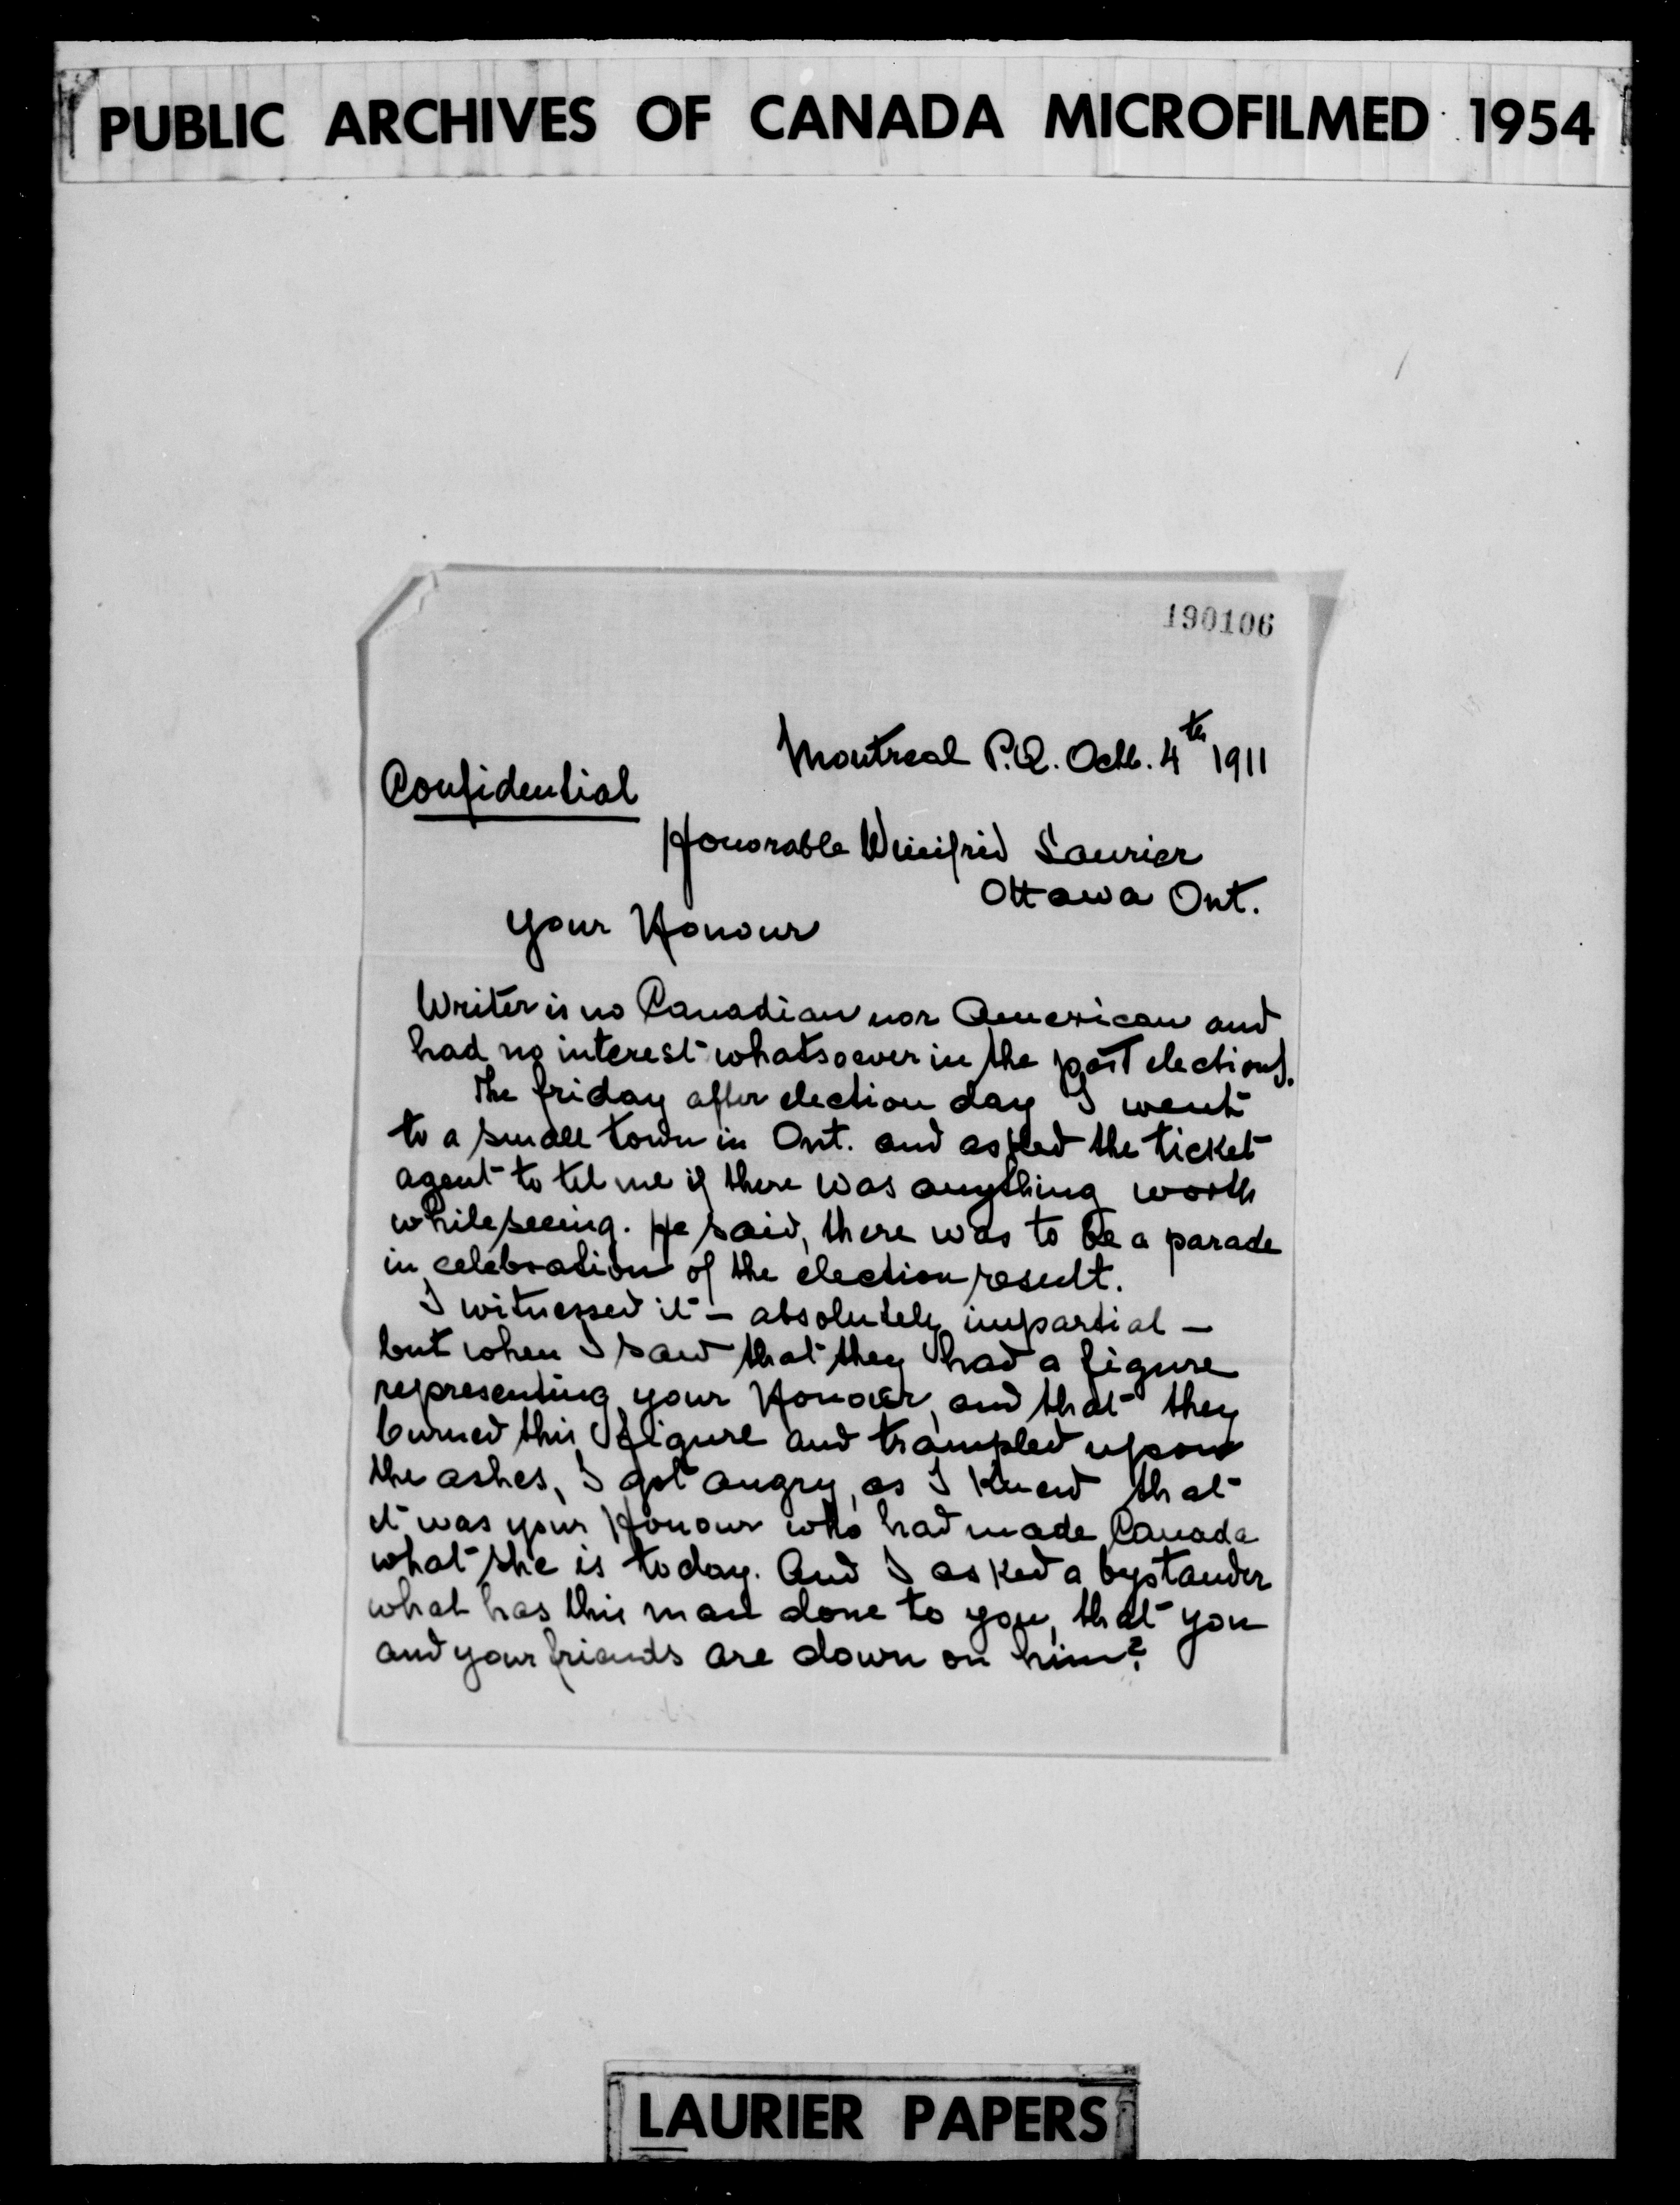 PUBLIC ARCHIVES OF CANADA MICROFILMED 1954
190106
Montreal P.Q. Octb. 4th 1911
Confidential
Honorable Winifrid Laurier
Ottawa Ont.
Your Honour
Writer is no Canadian nor American and
had no interest whatsoever in the past elections.
The friday after election day I went
to a small town in Ont. and asked the ticket
agent to tel me if there was anything worth
while seeing. He said, there was to be a parade
in celebration of the election result.
I witnessed it – absolutely impartial –
but when I saw that they had a figure
representing your Honour, and that they
burned this figure and trampled upon
the ashes, I got angry, as I knew that
it was your Honour who had made Canada
what she is today. And I asked a bystander
what has this man done to you, that you
and your friends are down on him?
LAURIER PAPERS